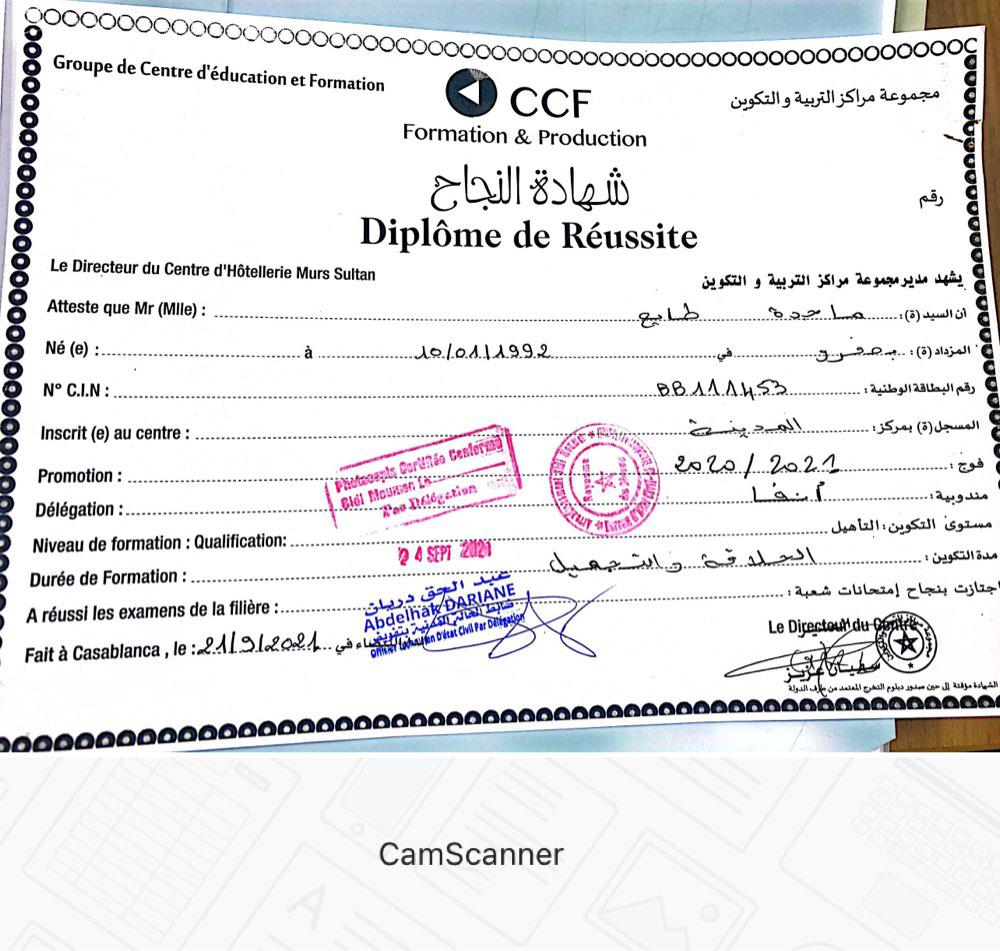 Groupe de Centre d'éducation et Formation
مجموعة مراكز التربية والتكوين
CCF
Formation & Production
شهادة النجاح
رقم
Diplôme de Réussite
Le Directeur du Centre d'Hôtellerie Murs Sultan
يشهد مدير مجموعة مراكز التربية و التكوين
Atteste que Mr (Mlle) : ماجدة طايع أن السيد (ة):
Né (e) : à 10/01/1992 في بصفرو المزداد (ة):
N° C.I.N : BB111453 رقم البطاقة الوطنية:
Inscrit (e) au centre : المدينة المسجل(ة) بمركز:
Promotion : 2020/2021 فوج:
Délégation : أنفا مندوبية:
Niveau de formation : Qualification: مستوى التكوين: التأهيل
Durée de Formation : الحلاقة والتجميل مدة التكوين:
A réussi les examens de la filière : اجتازت بنجاح إمتحانات شعبة:
Fait à Casablanca , le : 21/9/2021 في
Photocopie Certifiée Conforme
Sidi Moumen Le
Par Délégation
24 SEPT 2021
عبد الحق دريان
Abdelhak DARIANE
ضابط الحالة المدنية بتفويض
Officier d'état Civil Par Délégation
Le Directeur du Centre
سفيان عزيز
الشهادة مؤقتة إلى حين صدور دبلوم التخرج المعتمد من طرف الدولة
CamScanner